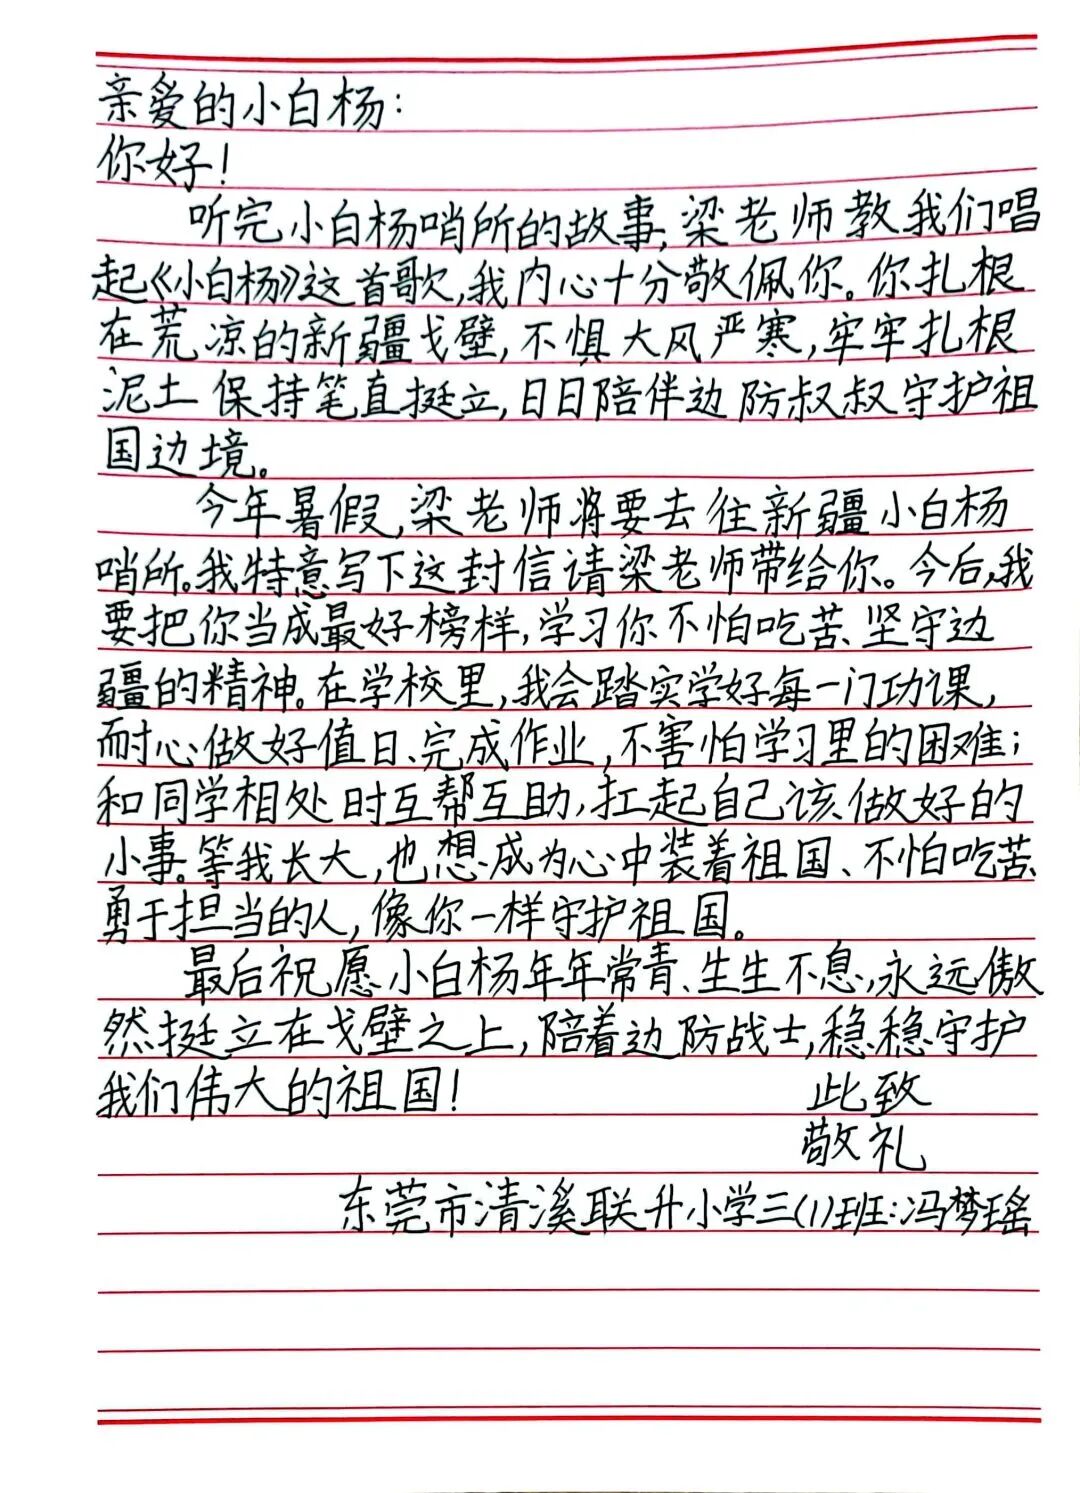 亲爱的小白杨：
你好！
听完小白杨哨所的故事，梁老师教我们唱
起《小白杨》这首歌，我内心十分敬佩你。你扎根
在荒凉的新疆戈壁，不惧大风严寒，牢牢扎根
泥土保持笔直挺立，日日陪伴边防叔叔守护祖
国边境。
今年暑假，梁老师将要去往新疆小白杨
哨所。我特意写下这封信请梁老师带给你。今后，我
要把你当成最好榜样，学习你不怕吃苦、坚守边
疆的精神。在学校里，我会踏实学好每一门功课，
耐心做好值日、完成作业，不害怕学习里的困难；
和同学相处时互帮互助，扛起自己该做好的
小事。等我长大，也想成为心中装着祖国、不怕吃苦、
勇于担当的人，像你一样守护祖国。
最后祝愿小白杨年年常青、生生不息，永远傲
然挺立在戈壁之上，陪着边防战士，稳稳守护
我们伟大的祖国！ 此致
敬礼
东莞市清溪联升小学三(1)班：冯梦瑶